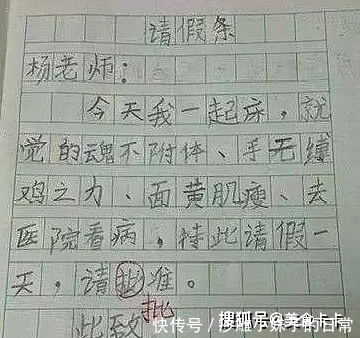 请假条
杨老师：
今天我一起床，就
觉的魂不附体、手无缚
鸡之力、面黄肌瘦、去
医院看病，特此请假一
天，请批准。
批
此致
搜狐号@美食卡卡
快传号/沙雕小妹子的日常